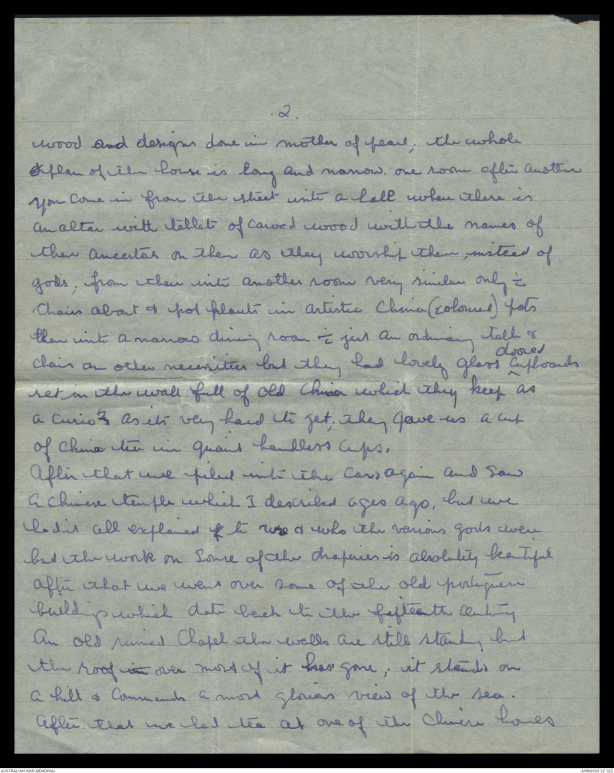 .2.
wood and designs done in mother of pearl, the whole
plan of the house is long and narrow. one room after another
you come in from the street into a hall where there is
an altar with tablets of carved wood with the names of
their ancestors on them as they worship them, instead of
gods, from there into another room very similar only c̄
chairs about & pot plants in artistic China (coloured) pots
then into a narrow dining room c̄ just an ordinary table &
chairs an other necessities but they had lovely glass doored cupboards
set in the wall full of old China which they keep as
a curio's as its very hard to get, they gave us a cup
of China tea in quaint handless cups.
After that we piled into the cars again and saw
a Chinese temple which I described ages ago, but we
had it all explained to us & who the various gods were
but the work on some of the draperies is absolutely beautiful
After that we went over some of the old portuguese
buildings which date back to the fifteenth century
An old ruined Chapel the walls are still standing but
the roof in over most of it has gone, it stands on
a hill & commands a most glorious view of the sea.
After that we had tea at one of the Chinese homes
AUSTRALIAN WAR MEMORIAL